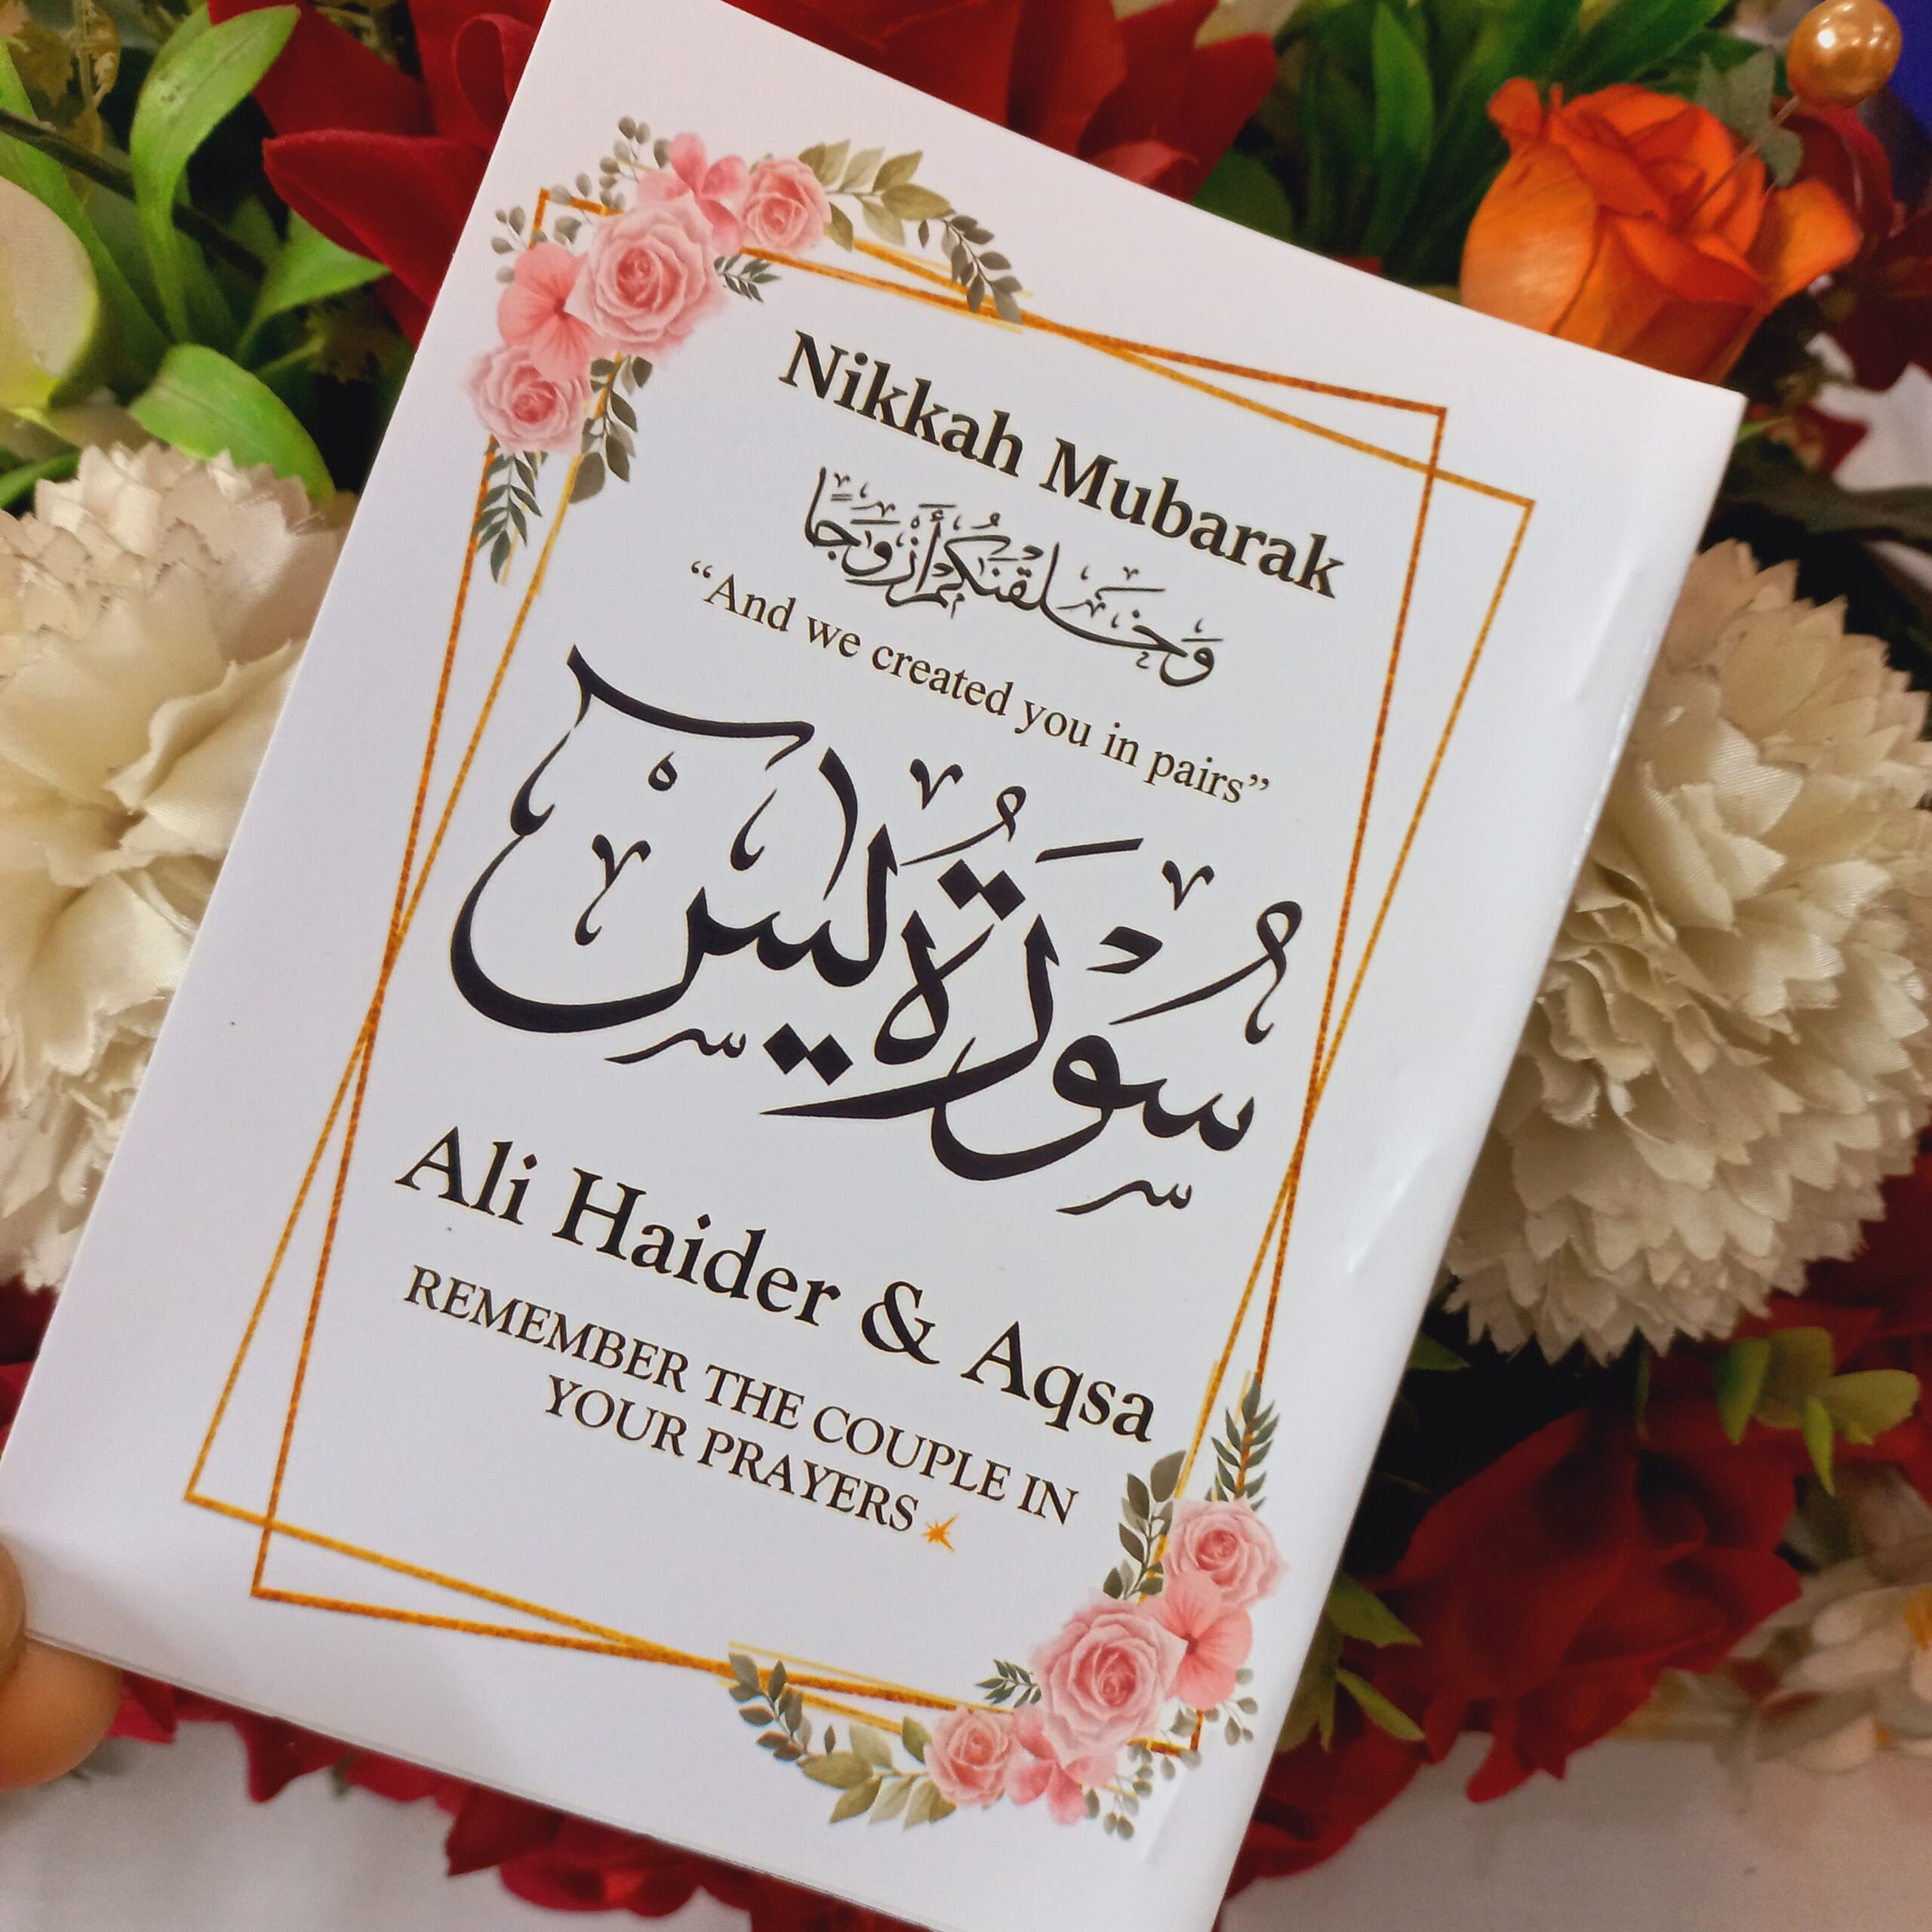 Nikkah Mubarak
وَخَلَقْنَٰكُمْ أَزْوَٰجًا
“And we created you in pairs”
سُورَةُ يٰسٓ
Ali Haider & Aqsa
REMEMBER THE COUPLE IN
YOUR PRAYERS